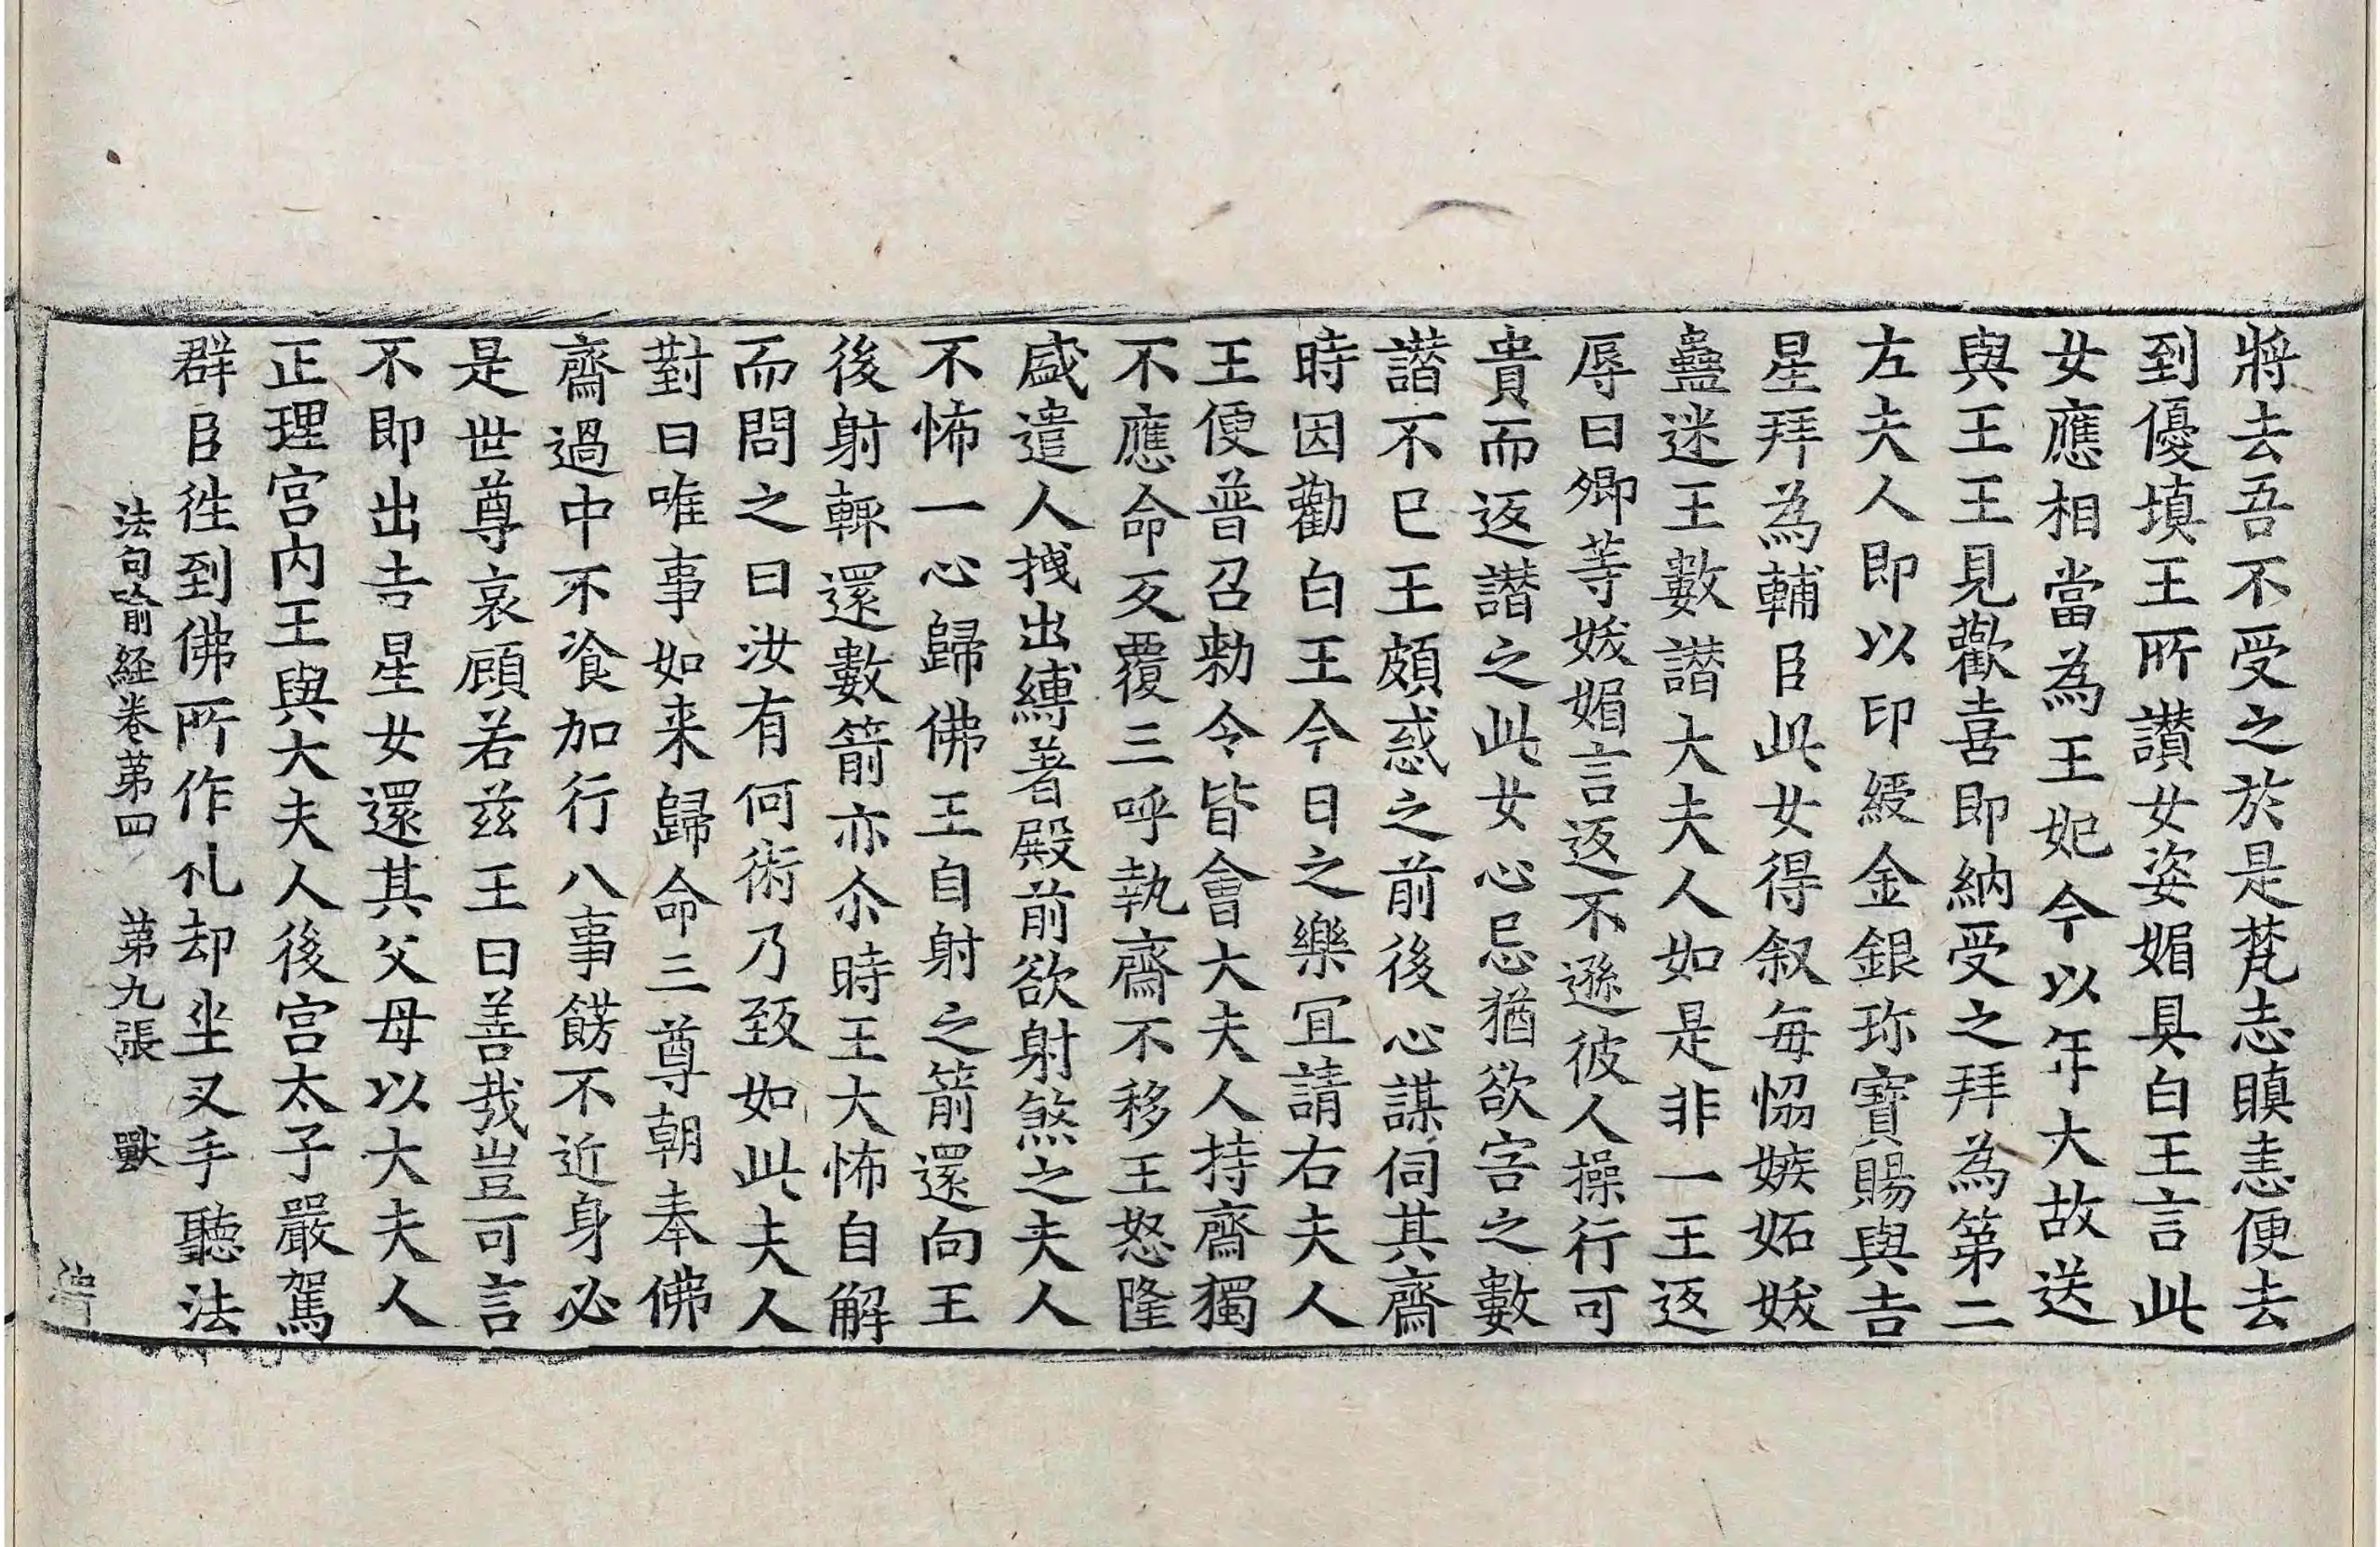 將去吾不受之於是梵志瞋恚便去
到優填王所讃女姿媚具白王言此
女應相當為王妃今以年大故送
與王王見歡喜即納受之拜為第二
左夫人即以印綬金銀珎寶賜與吉
星拜為輔臣此女得叙每恊嫉妬妭
蠱迷王數譖大夫人如是非一王返
辱曰卿等妭媚言返不遜彼人操行可
貴而返譖之此女心忌猶欲害之數
譖不已王頗惑之前後心謀伺其齋
時因勸白王今日之樂冝請右夫人
王便普召勑令皆會大夫人持齋獨
不應命反覆三呼執齋不移王怒隆
盛遣人拽出縛著殿前欲射煞之夫人
不怖一心歸佛王自射之箭還向王
後射輙還數箭亦尒時王大怖自解
而問之曰汝有何術乃致如此夫人
對曰唯事如来歸命三尊朝奉佛
齋過中不飡加行八事餝不近身必
是世尊哀顧若兹王曰善哉豈可言
不即出吉星女還其父母以大夫人
正理宫内王與大夫人後宫太子嚴駕
群臣徃到佛所作礼却坐叉手聽法
法句喻経卷第四 第九張 獸